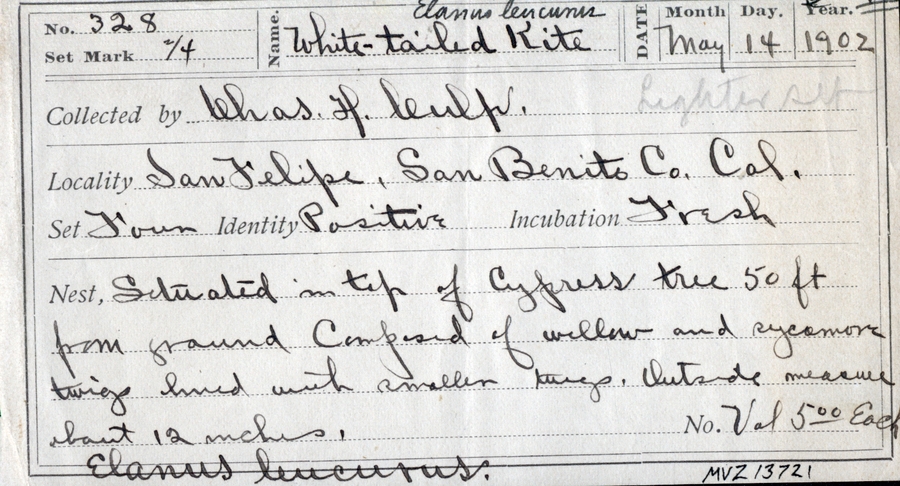 Elanus leucurus
No. 328 Name. White-tailed Kite DATE Month Day. Year.
Set Mark 2/4 May 14 1902
Collected by Chas. H. Culp. Lighter set
Locality San Felipe, San Benito Co. Cal.
Set Four Identity Positive Incubation Fresh
Nest, Situated in top of Cypress tree 50 ft
from ground Composed of willow and sycamore
twigs lined with smaller twigs. Outside measure
about 12 inches. No. Val 5.00 Each
Elanus leucurus.
MVZ 13721